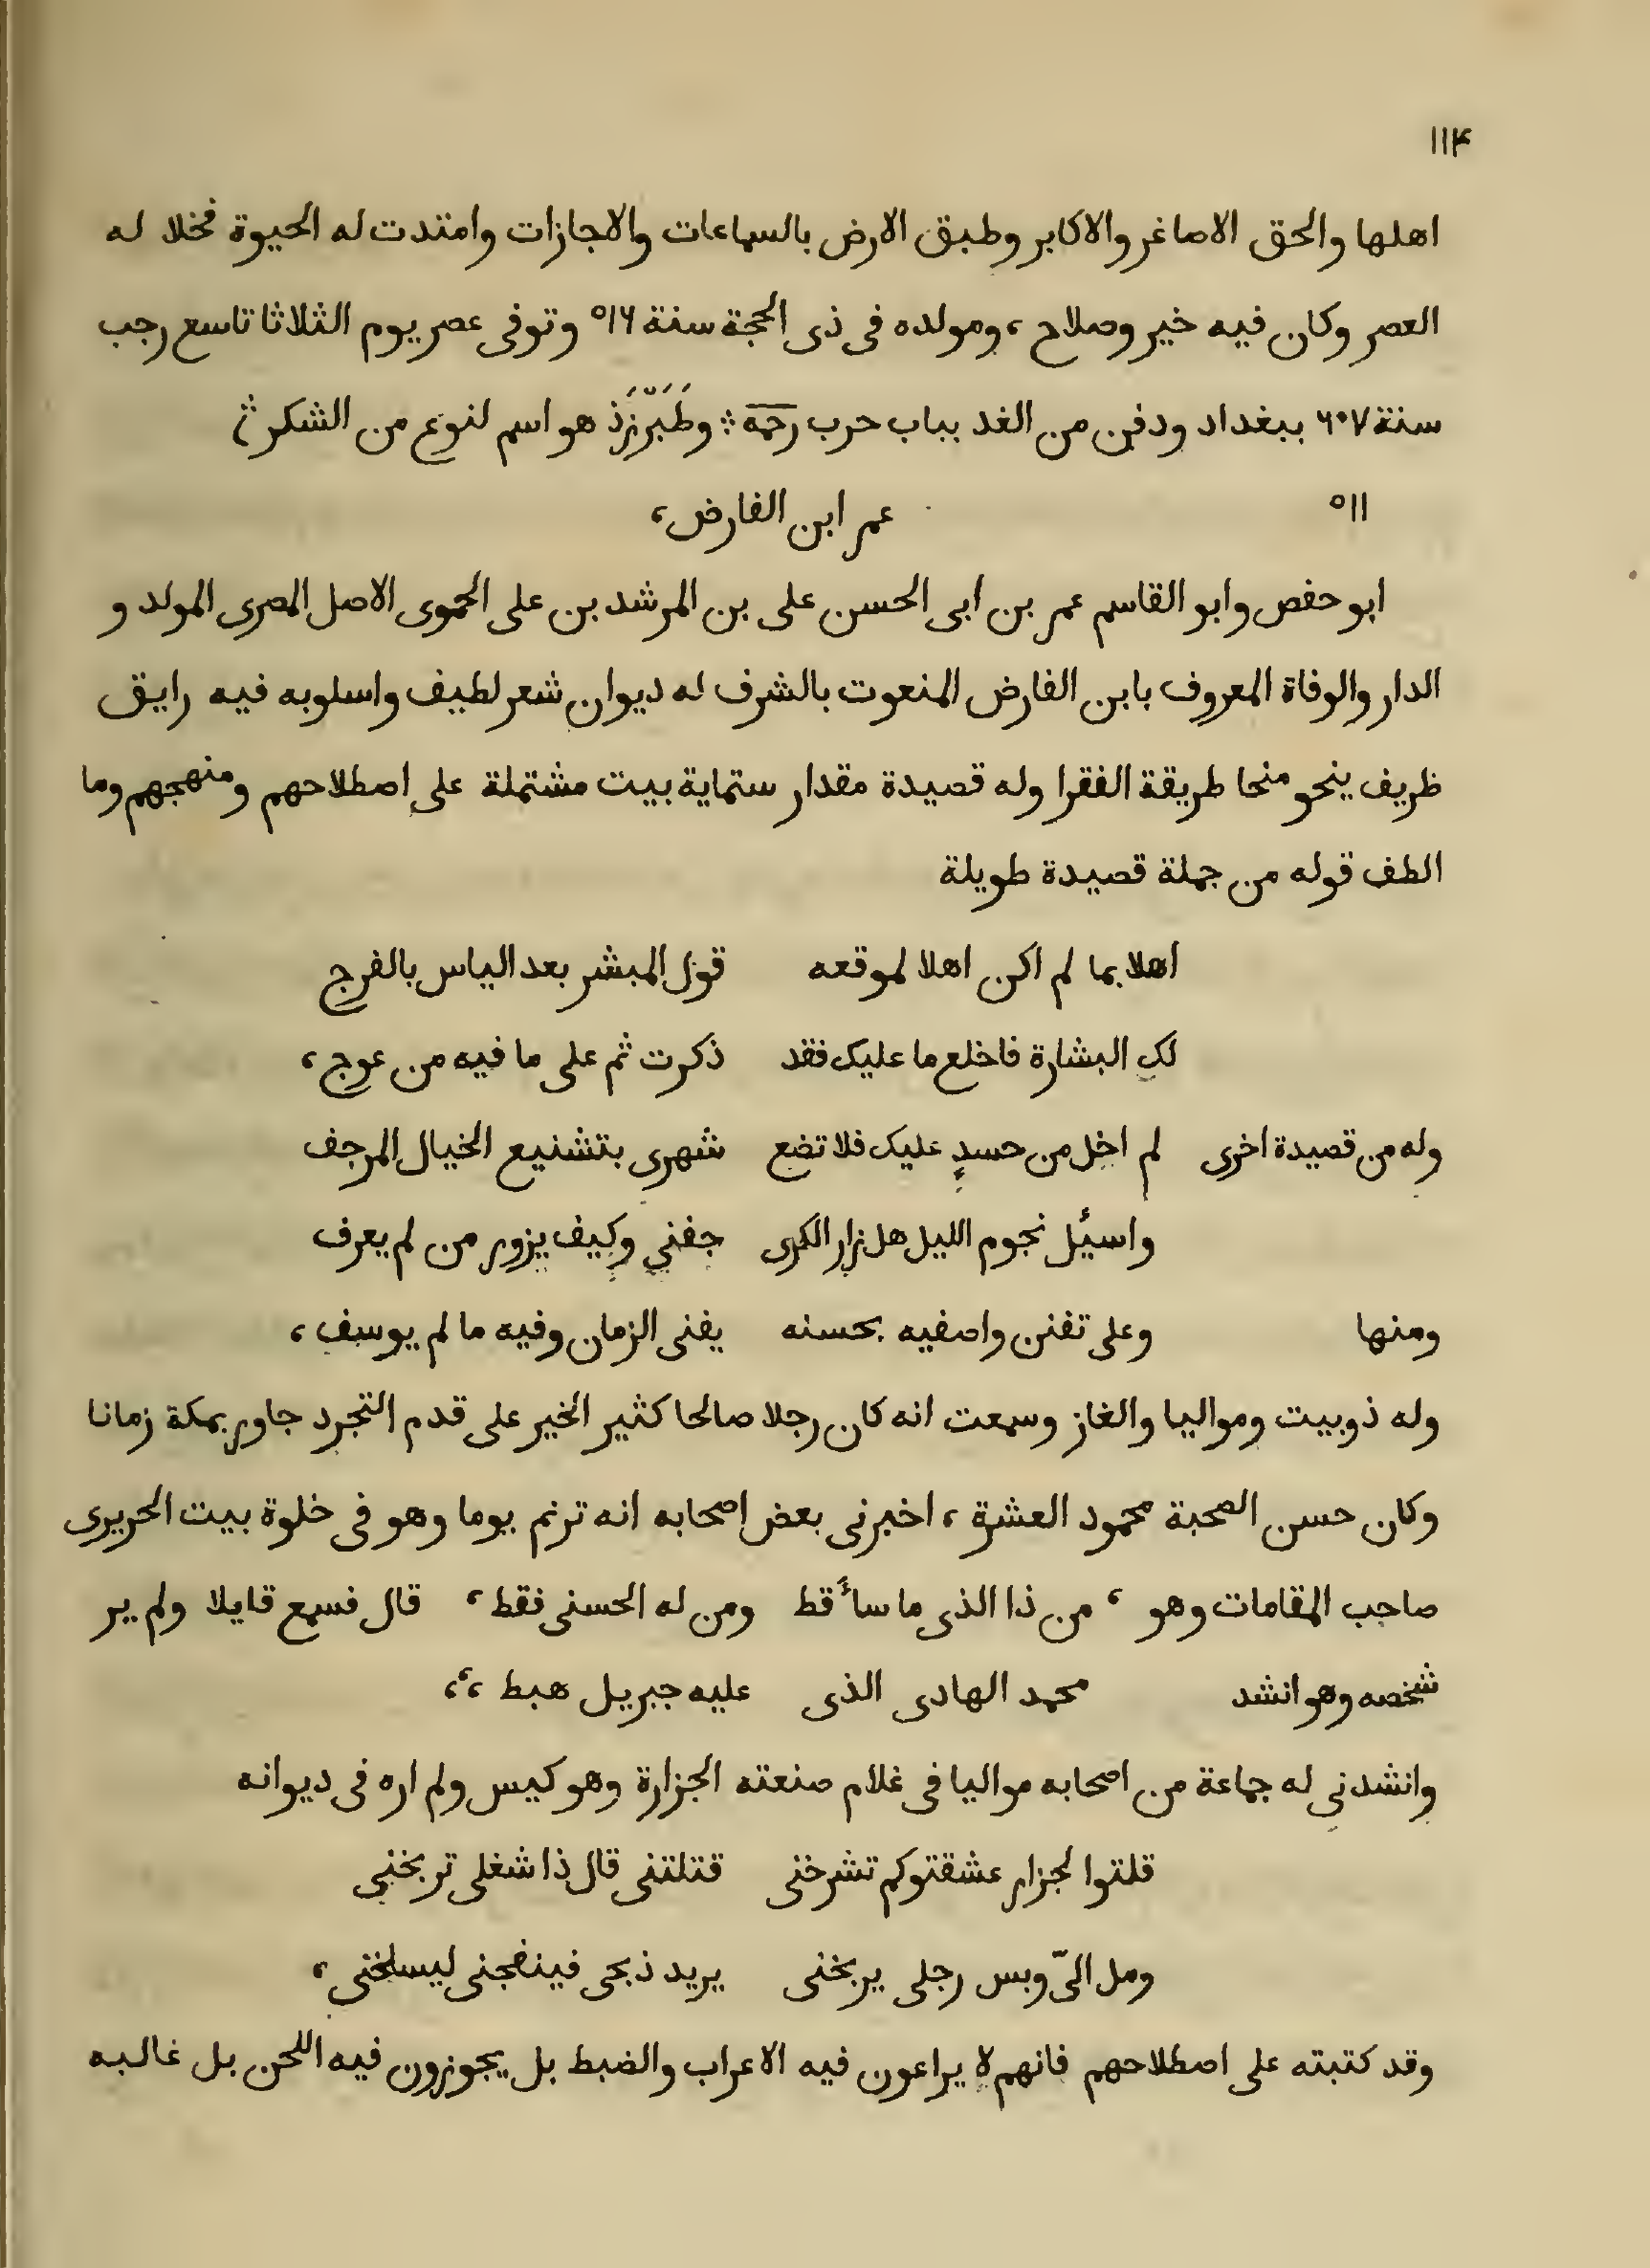 ١١۴
اهلها والحق الاصاغر والاكابر وطبق الارض بالسماعات والاجازات وامتدت له الحيوة فخلا له
العصر وكان فيه خير وصلاح ، ومولده فى ذى الحجة سنة ٥١٦ وتوفى عصر يوم الثلاثا تاسع رجب
سنة ٦٠٧ ببغداد ودفن من الغد بباب حرب رحمه وطَبَرْزَذ هو اسم لنوع من الشكر
٥١١ عمر ابن الفارض ،
ابو حفص وابو القاسم عمر بن ابى الحسن على بن المرشد بن على الحموى الاصل المصرى المولد و
الدار والوفاة المعروف بابن الفارض المنعوت بالشرف له ديوان شعر لطيف واسلوبه فيه رايق
ظريف ينحو منحا طريقة الفقرا وله قصيدة مقدار ستماية بيت مشتملة على اصطلاحهم ومنهجهم وما
الطف قوله من جملة قصيدة طويلة
اهلا بما لم اكن اهلا لموقعه قول المبشر بعد الياس بالفرج
لك البشارة فاخلع ما عليك فقد ذكرت ثم على ما فيه من عوج ،
وله من قصيدة اخرى لم اخل من حسدٍ عليك فلا تضع شهرى بتشنيع الخيال المرجف
واسئل نجوم الليل هل زار الكرى جفنى وكيف يزور من لم يعرف
ومنها وعلى تفنن واصفيه بحسنه يفنى الزمان وفيه ما لم يوسف ،
وله ذوبيت ومواليا والغاز وسمعت انه كان رجلا صالحا كثير الخير على قدم التجرد جاور بمكة زمانا
وكان حسن الصحبة محمود العشرة ، اخبرنى بعض اصحابه انه ترنم يوما وهو فى خلوة بيت الحريرى
صاحب المقامات وهو ، من ذا الذى ما سأ قط ومن له الحسنى فقط ، قال فسمع قايلا ولم ير
شخصه وهو انشد محمد الهادى الذى عليه جبريل هبط ،،،
وانشدنى له جماعة من اصحابه مواليا فى غلام صنعته الجزارة وهو كيس ولم اره فى ديوانه
قلتوا لجزار عشقتوكم تشرخنى قتلتنى قال ذا شغلى تربخنى
ومل الىّ وبس رجلى يربخنى يريد ذبحى فينفخنى ليسلخنى ،
وقد كتبته على اصطلاحهم فانهم لا يراعون فيه الاعراب والضبط بل يجوزون فيه اللحن بل غالبه